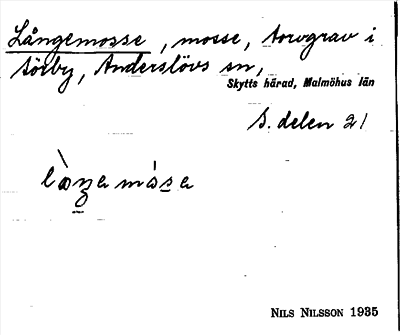 Långemosse, mosse, torvgrav i
Sörby, Anderslövs sn,
Skytts härad, Malmöhus län
S. delen 21
NILS NILSSON 1935